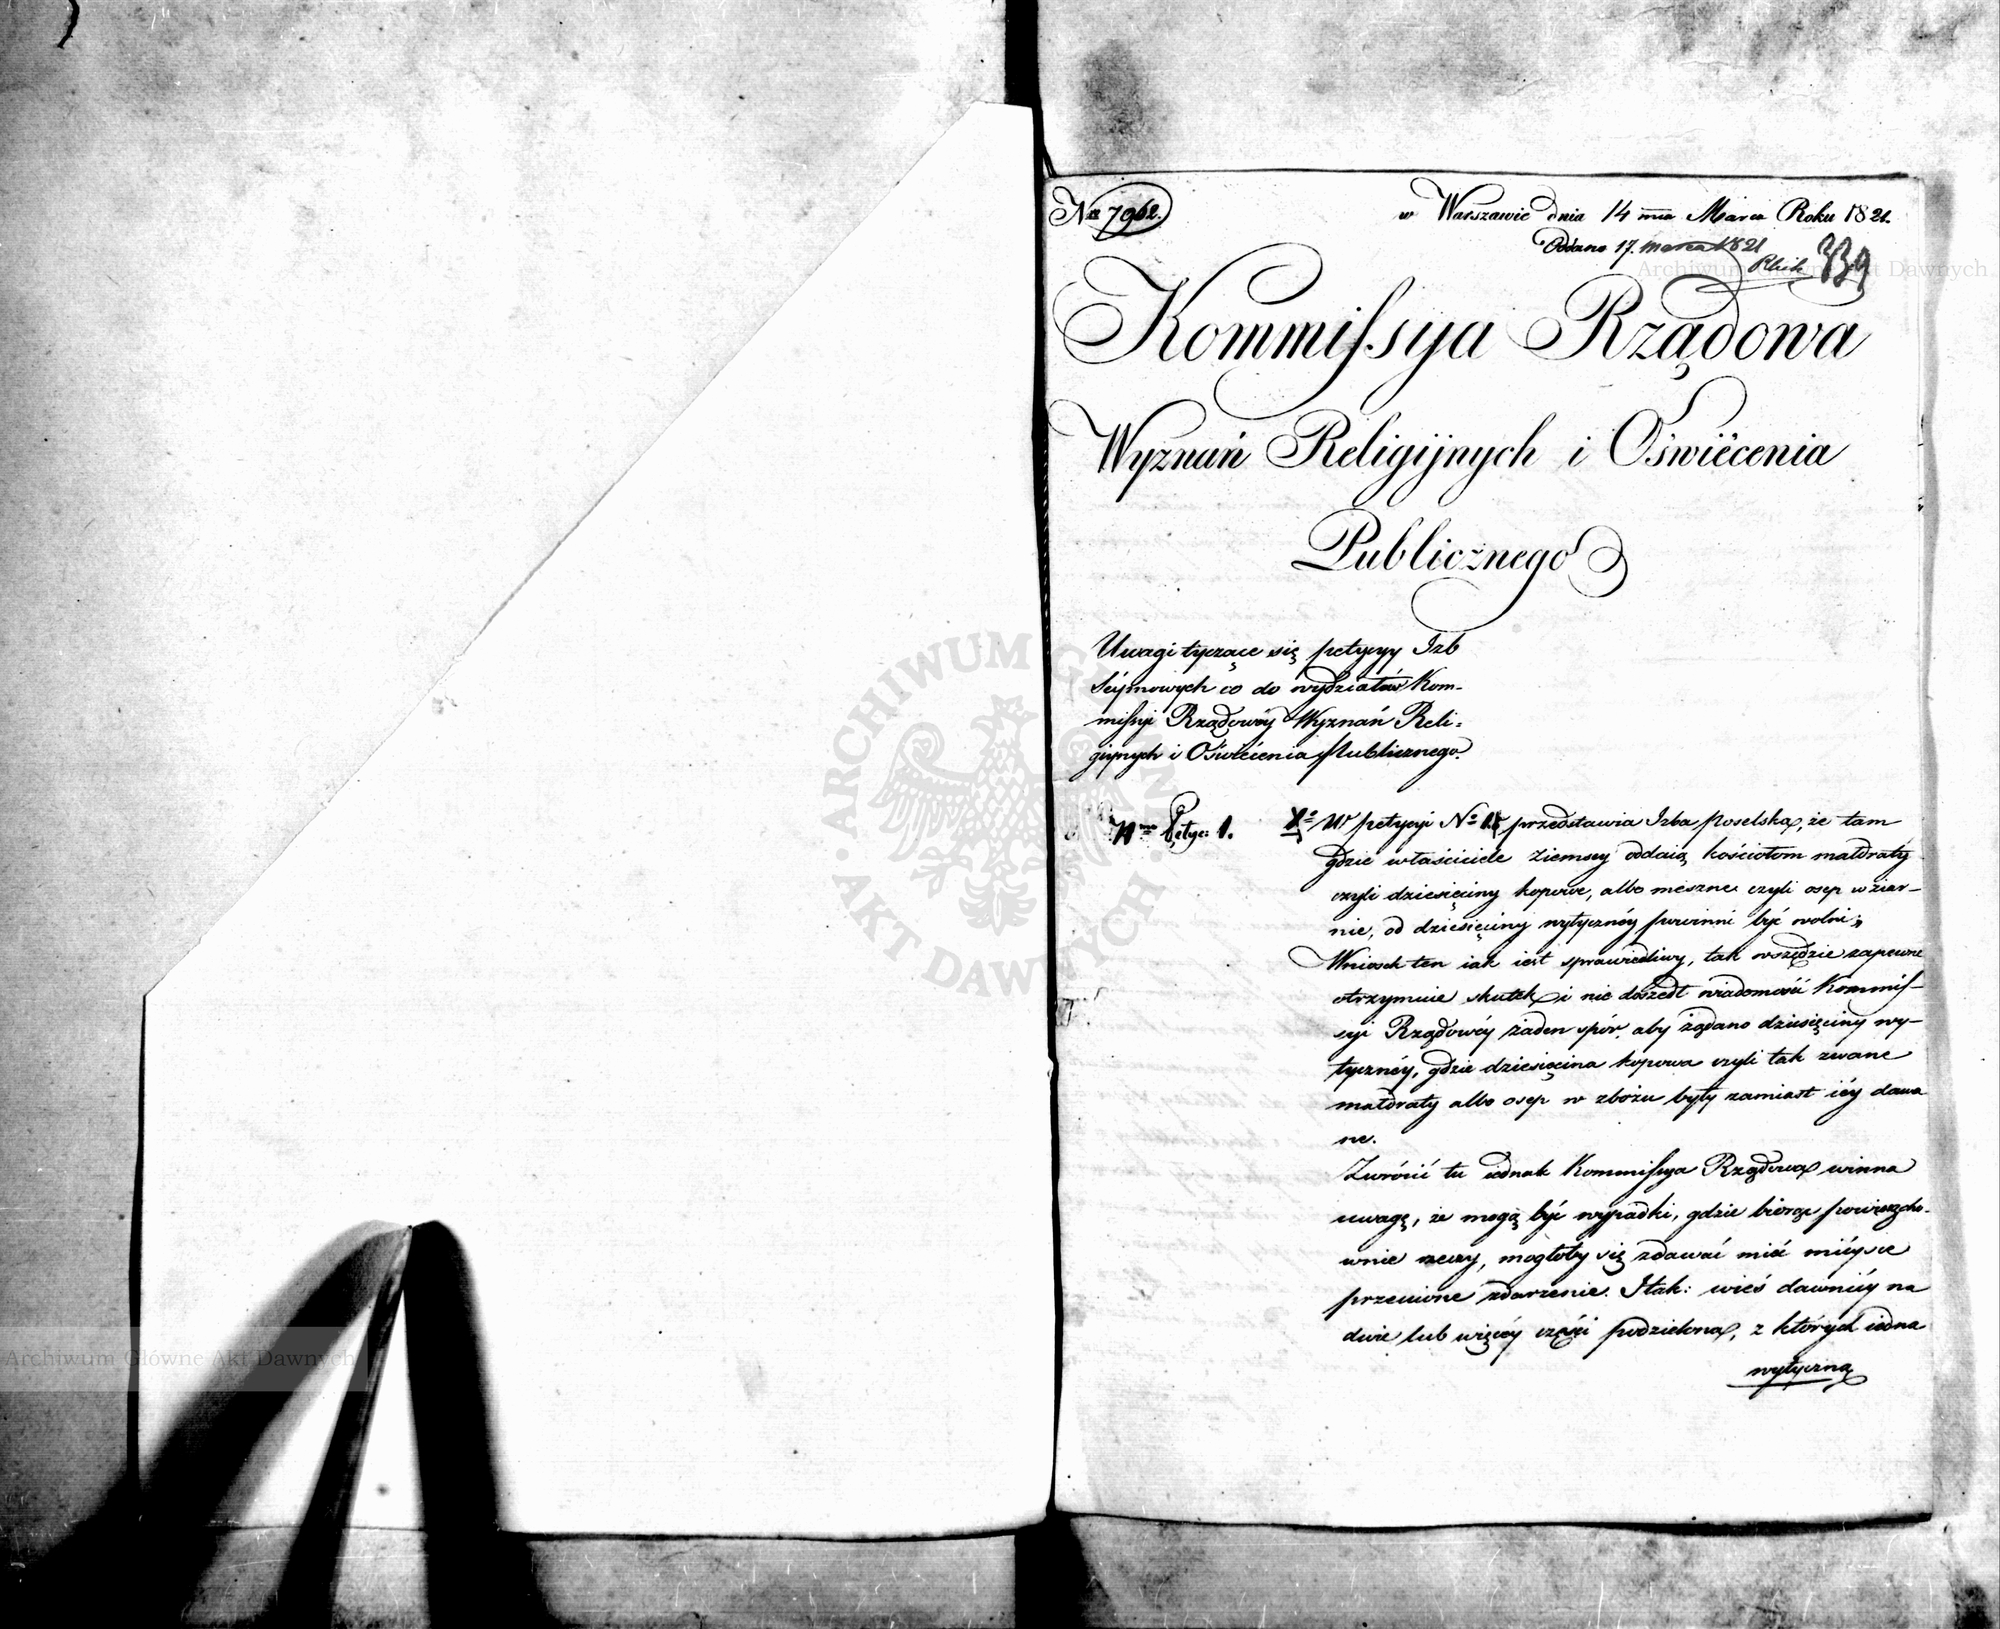 No 7962.
w Warszawie dnia 14 mca Marca Roku 1821.
Oddano 17. marca 1821
339
Kommissya Rządowa
Wyznań Religijnych i Oświécenia
Publicznego
Uwagi tyczące się petycyy Izb
Séymowych co do wydziałów Kom-
missyi Rządowéy Wyznań Reli-
gijnych i Oświécenia Publicznego.
Petyc: 1.
W petycyi No przedstawia Izba poselska, że tam
gdzie właściciele ziemscy oddaią kościołom małdraty
czyli dziesięciny kopowe, albo meszne czyli osep w ziar-
nie, od dziesięciny wytycznéy powinni być wolni;
Wniosek ten iak iest sprawiedliwy, tak wszędzie zapewne
otrzymuie skutek i nie doszedł wiadomości Kommis-
syi Rządowéy żaden spór, aby żądano dziesięciny wy-
tycznéy, gdzie dziesięcina kopowa czyli tak zwane
małdraty albo osep w zbożu były zamiast iéy dawa
ne.
Zwrócić tu iednak Kommissya Rządowa winna
uwagę, że mogą być wypadki, gdzie biorąc powierzcho-
wnie rzeczy, mogłoby się zdawać mieć miéysce
przeciwne zdarzenie. I tak: wieś dawniéy na
dwie lub więcéy części podzielona, z których iedna
wytyczną
Archiwum Główne Akt Dawnych
Archiwum Główne Akt Dawnych
ARCHIWUM GŁÓWNE AKT DAWNYCH